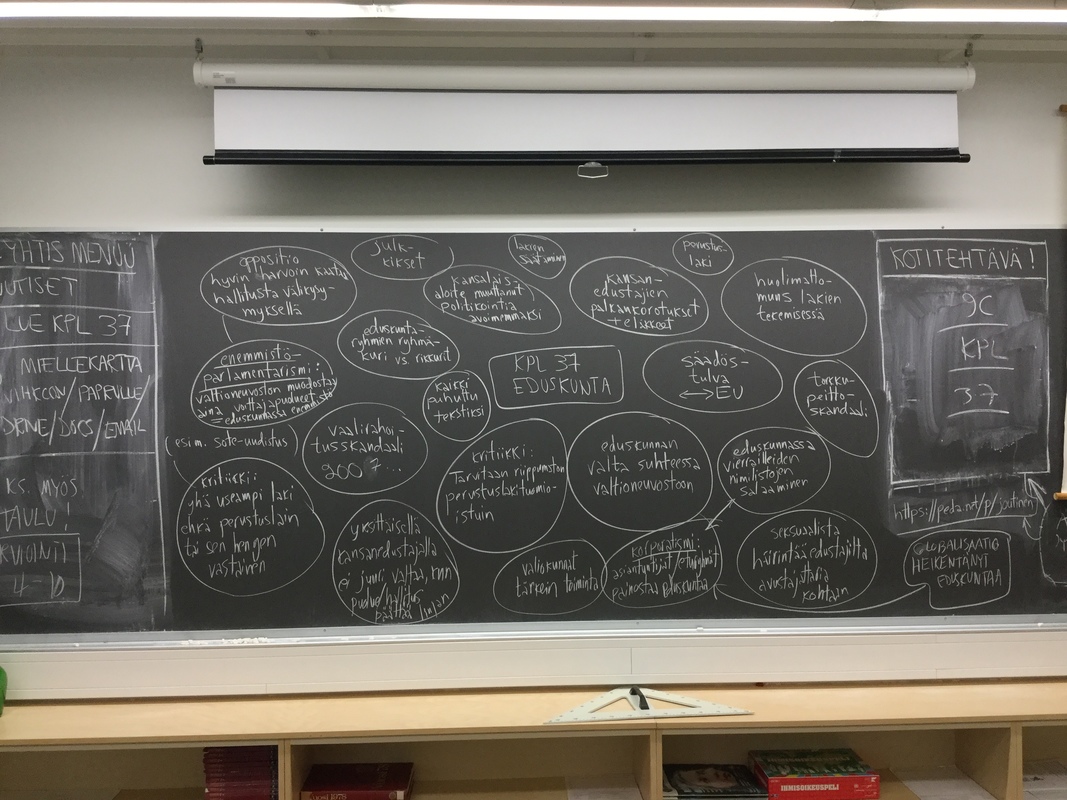 YHTIS MENUU
UUTISET
LUE KPL 37
MIELLEKARTTA
VIHKOON/PAPRULLE/
DRIVE/DOCS/EMAIL
KS. MYÖS
TAULU!
KVIOINTI
4-10
oppositio
hyvin harvoin kaataa
hallitusta välikysy-
myksellä
julk-
kikset
lakien
säätäminen
perustus-
laki
kansalais-
aloite muuttanut
politikointia
avoimemmaksi
kansan-
edustajien
palkankorotukset
+ eläkkeet
huolimatto-
muus lakien
tekemisessä
eduskunta-
ryhmien ryhmä-
kuri vs rikkurit
enemmistö-
parlamentarismi:
valtioneuvoston muodostav
aina voittajapuolueet
= eduskunnassa enemmistö
(esim. sote-uudistus)
kaikki
puhuttu
tekstiksi
KPL 37
EDUSKUNTA
säädös-
tulva
↔ EU
torkku-
peitto-
skandaali
vaalirahoi-
tusskandaali
2007...
kritiikki:
Tarvitaan riippumaton
perustuslakituomio-
istuin
eduskunnan
valta suhteessa
valtioneuvostoon
eduskunnassa
vierailleiden
nimilistojen
salaaminen
kritiikki:
yhä useampi laki
ehkä perustuslain
tai sen hengen
vastainen
yksittäisellä
kansanedustajalla
ei juuri valtaa, kun
puolue/hallitus
päättää linjan
valiokunnat
tärkein toiminta
korporatismi:
asiantuntijat/eturyhmät
painostaa eduskuntaa
seksuaalista
häirintää edustajilta
avustajattaria
kohtaan
GLOBALISAATIO
HEIKENTÄNYT
EDUSKUNTAA
KOTITEHTÄVÄ!
9C
KPL
37
https://peda.net/p/joutinen
IHMISOIKEUSPELI